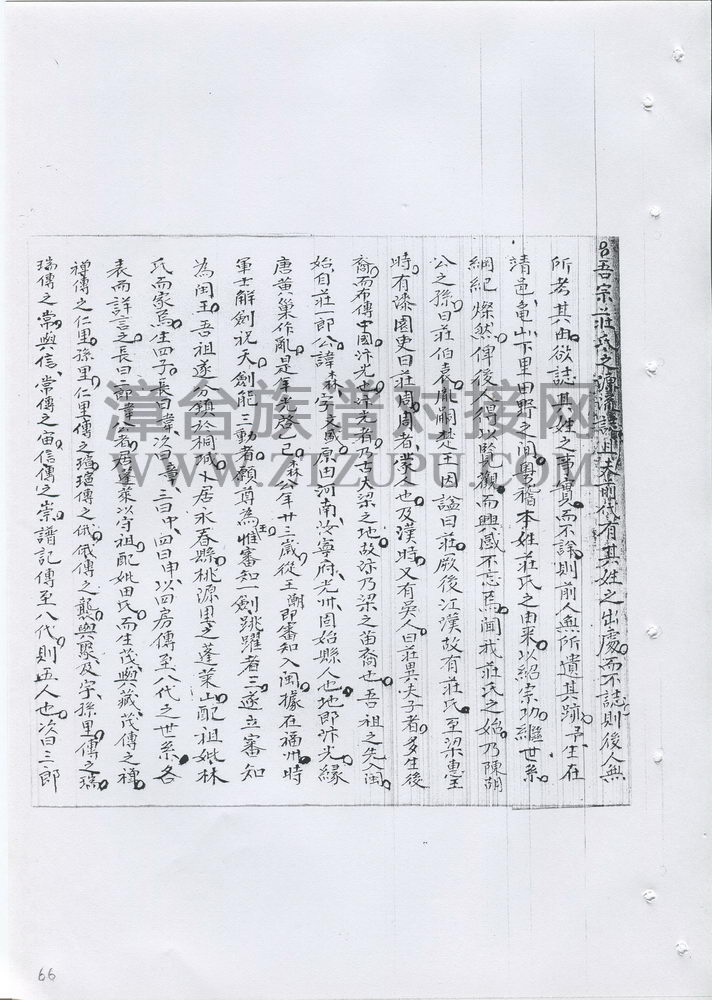 吾宗莊氏之源流譜且夫前代有其姓之出處而不誌則後人無
所考其由欲誌其姓之事實而不詳則前人無所遺其跡予生在
清邑龜山下里田野之間粵稽本姓莊氏之由来以紹宗功繼世系
綱紀燦然俾後人得以覽觀而興感不忘焉聞我莊氏之始乃陳胡
公之孫曰莊伯袁胤嗣基王因諡曰莊厥後江漢故有莊氏至梁惠王
時有漆園吏曰莊周周者蒙人也及漢時又有吳人曰莊異夫子者多生後
裔而布傳中國汴光汴光者乃古大梁之地故汴乃梁之苗裔也吾祖之先閩
始自莊一郎公諱森字文盛原由河南汝寧府光州固始縣人也地即汴光緣
唐黃巢作亂是年光啓乙巳森公年廿三歲從王潮即審知入閩據在福州時
軍士解劍祝天劍能三動者願尊為王惟審知一劍跳躍者三遂立審知
為閩王吾祖遂分鎮於桐城卜居永春縣桃源里之蓬萊山配祖妣林
氏而家焉生四子長曰韋次曰章三曰中四曰申以四房傳至八代之世系各
表而詳言之長曰二郎韋公者居蓬萊以守祖配妣田氏而生茂與藏茂傳之禪
禪傳之仁里孫里仁里傳之瑄瑄傳之俄俄傳之襲與聚及字孫里傳之瑞
瑞傳之常與信常傳之宙信傳之崇譜記傳至八代則五人也次曰三郎
漳台族谱对接网
WWW.ZTZUPU.COM
66